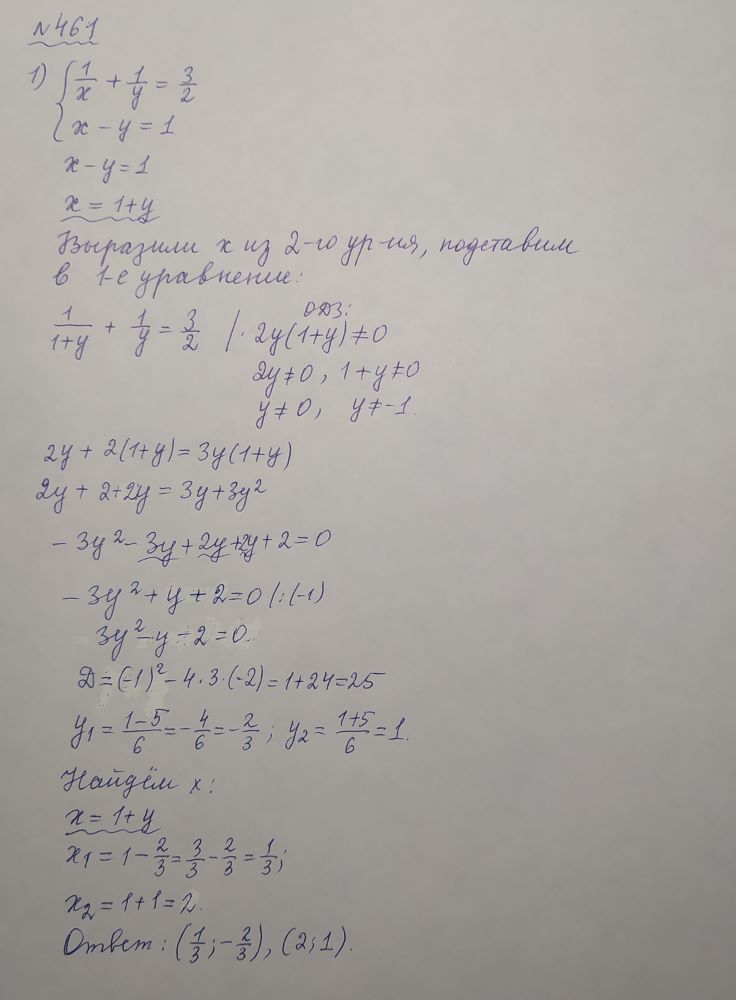 №461
1) { 1/x + 1/y = 3/2
x - y = 1
x - y = 1
x = 1+y
Выразили x из 2-го ур-ия, подставим
в 1-е уравнение:
ОДЗ:
1/(1+y) + 1/y = 3/2 | · 2y(1+y) ≠ 0
2y ≠ 0, 1+y ≠ 0
y ≠ 0, y ≠ -1.
2y + 2(1+y) = 3y(1+y)
2y + 2+2y = 3y+3y²
- 3y² - 3y + 2y + 2y + 2 = 0
- 3y² + y + 2 = 0 |:(-1)
3y² - y - 2 = 0.
Д = (-1)² - 4·3·(-2) = 1+24=25
y₁ = (1-5)/6 = -4/6 = -2/3 ; y₂ = (1+5)/6 = 1.
Найдём x:
x = 1+y
x₁ = 1 - 2/3 = 3/3 - 2/3 = 1/3;
x₂ = 1+1=2.
Ответ: (1/3; -2/3), (2; 1).